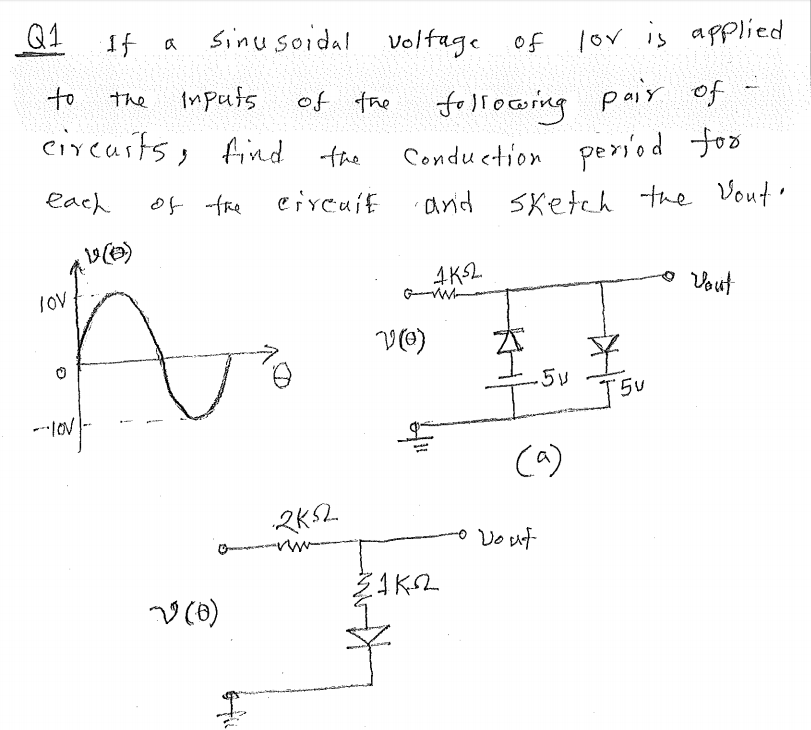 Q1 If a sinusoidal voltage of 10v is applied
to the inputs of the following pair of -
circuits, find the conduction period for
each of the circuit and sketch the Vout.
v(θ)
10V
0
-10V
θ
1KΩ
Vout
v(θ)
5v
5v
(a)
2KΩ
Vout
1KΩ
v(θ)